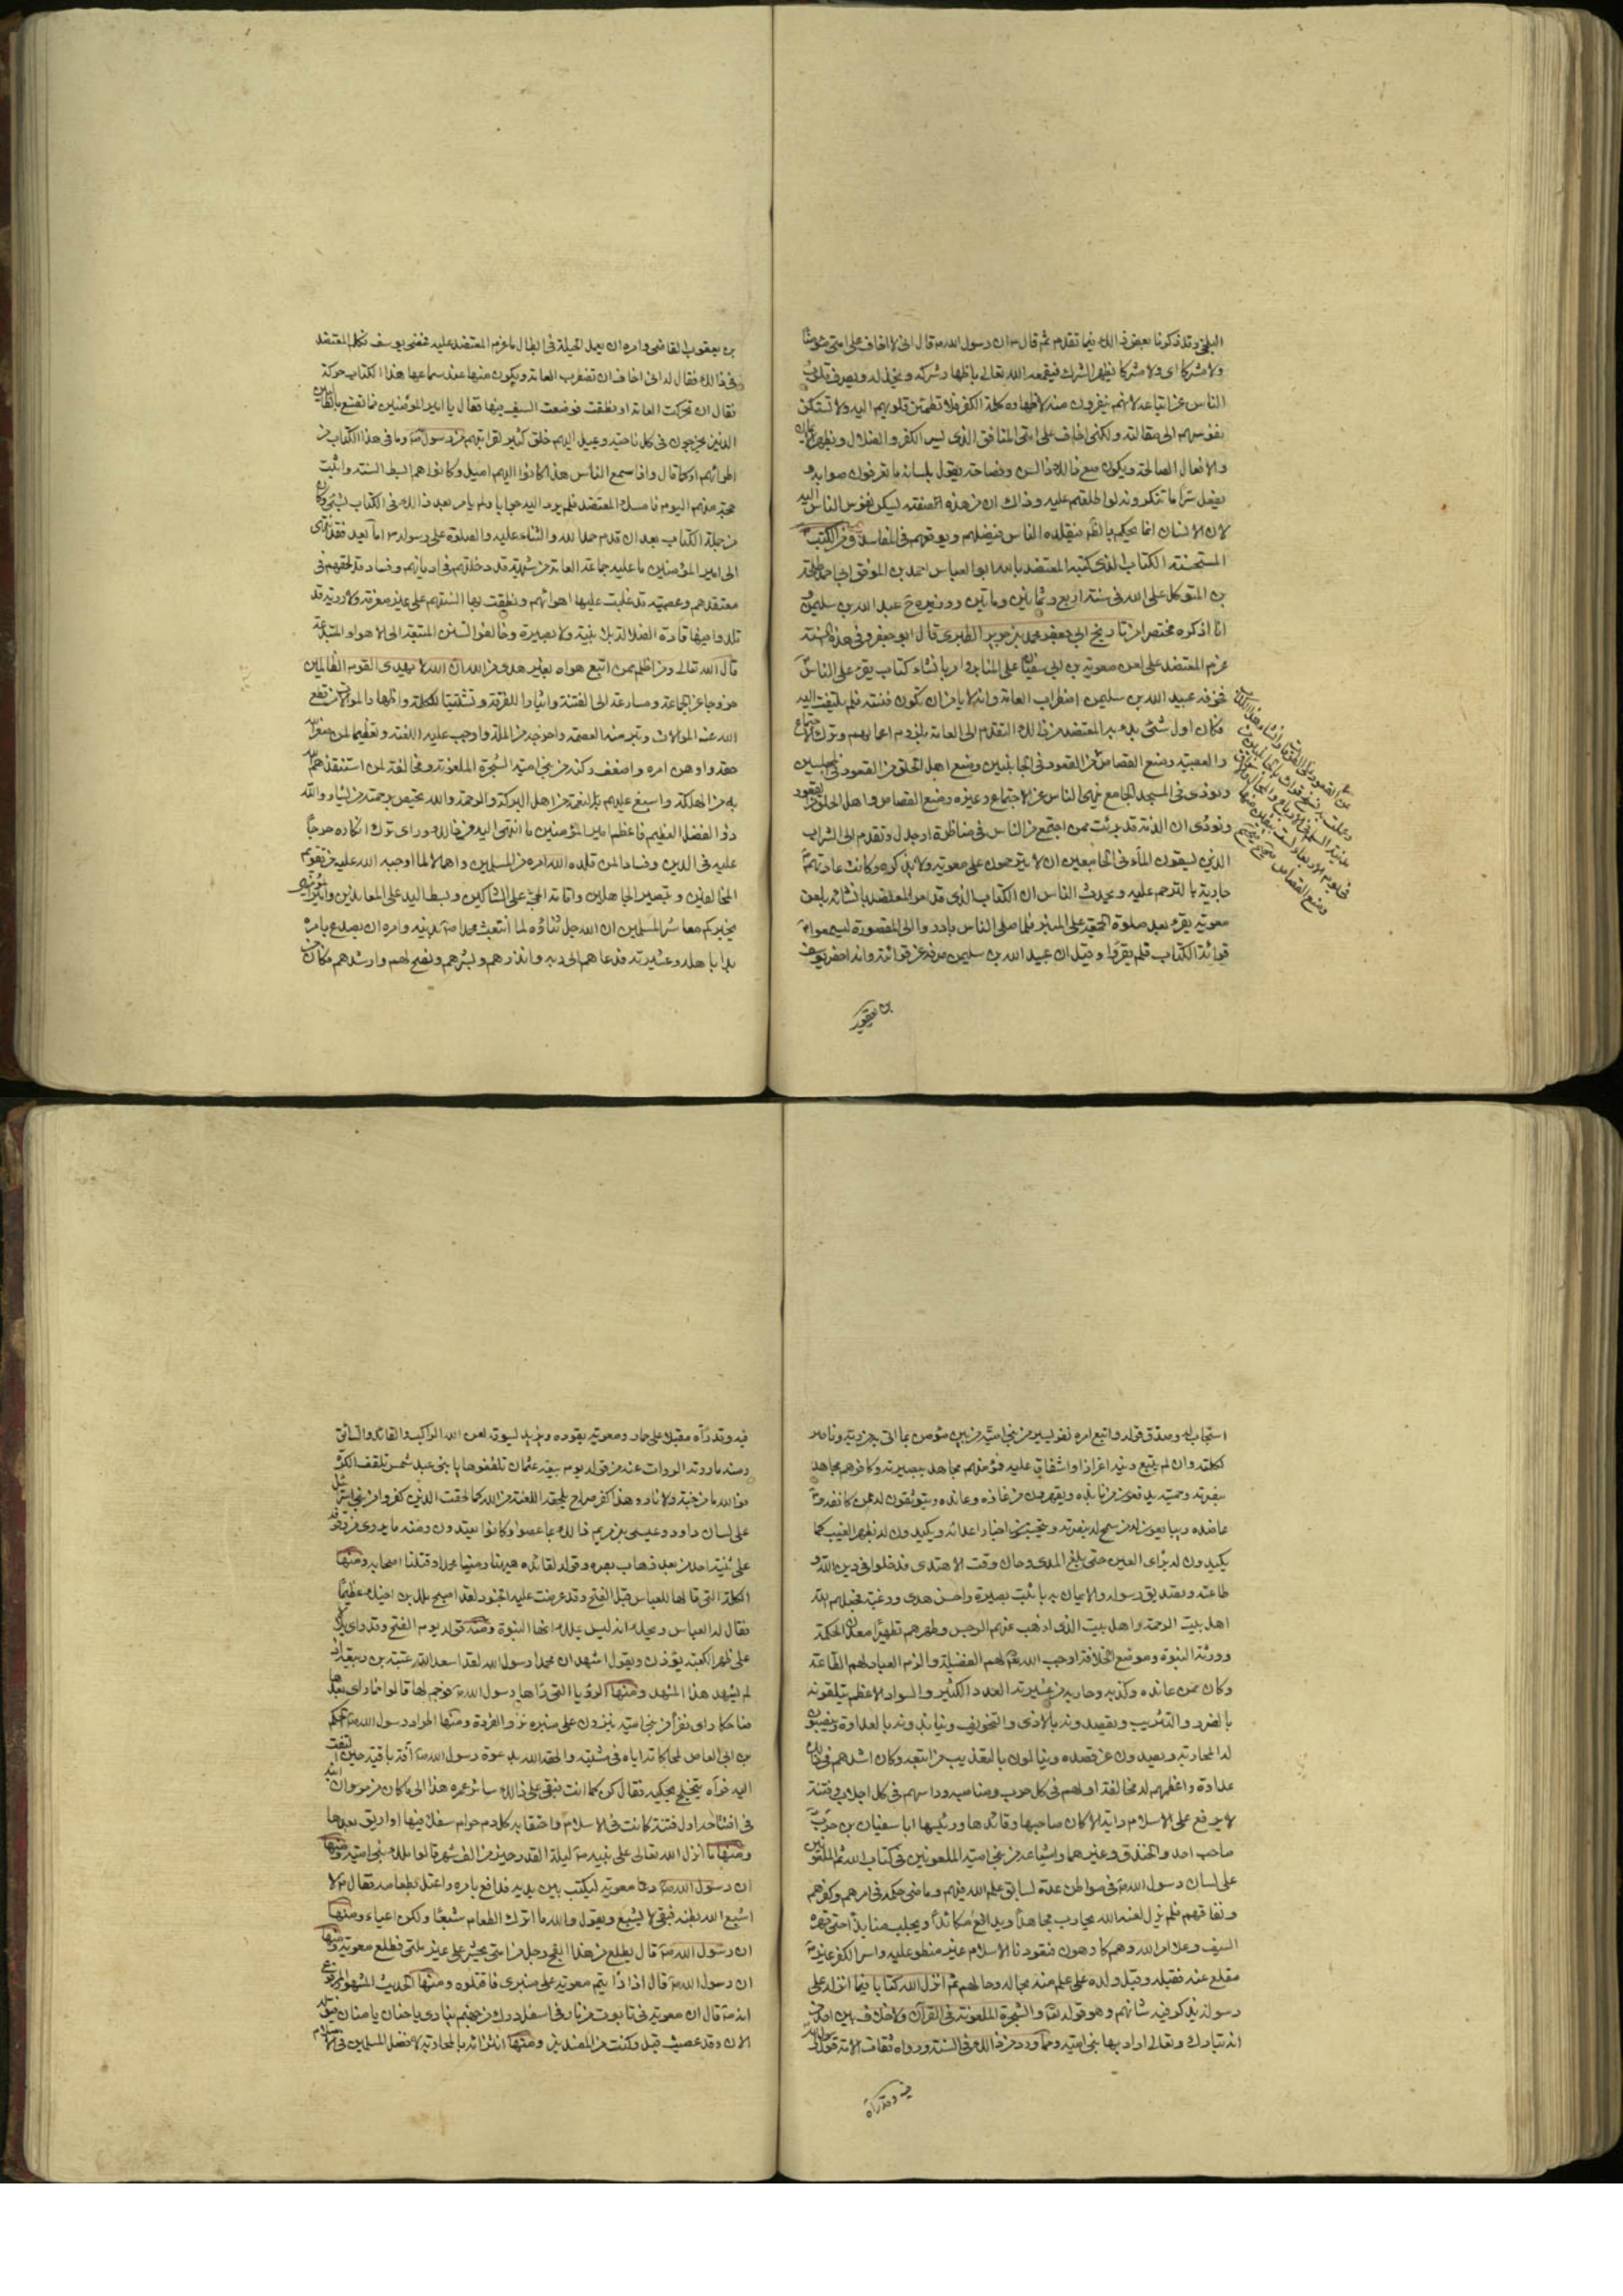 البلخي وقد ذكرنا بعض ذالك فيما تقدم ثم قال ان رسول الله قال انى لا اخاف على امتى مؤمنًا
ولا مشركا اى ولا مشركا يظهر الشرك فيقمعه الله تعالى باظهار شركه ويخذله ويصرف قلوب
الناس عن اتباعه لانهم ينفرون منه لاظهاره كلمة الكفر فلا تطمئن قلوبهم اليه ولا تسكن
نفوسهم الى مقالته ولكنى اخاف على امتى المنافق الذى يسر الكفر والضلال ويظهر الايمان
والافعال الصالحة ويكون مع ذالك ذا لسن وفصاحة يقول بلسانه ما تعرفون صوابه و
يفعل سرًا ما تنكرونه لو اطلعتم عليه وذاك ان من هذه صفته ليسكن نفوس الناس اليه
لان الانسان انما يحكم بالظاهر فيقلده الناس فيضلهم ويوقعهم فى المفاسد ومن الكتب
المستحسنة الكتاب الذى كتبه المعتضد بالله ابو العباس احمد بن الموفق ابى احمد طلحة
بن المتوكل على الله فى سنة اربع وثمانين ومأتين ووزيره ح عبد الله بن سليمن و
انا اذكره مختصرا من تاريخ ابى جعفر محمد بن جرير الطبرى قال ابو جعفر وفى هذه السنة
عزم المعتضد على لعن معوية بن ابى سفيان على المنابر وامر بانشاء كتاب يقرء على الناس
فخوفه عبيد الله بن سليمن اضطراب العامة وانه لا يامن ان تكون فتنة فلم يلتفت اليه
فكان اول شئ بدء به المعتضد من ذالك التقدم الى العامة بلزوم اعمالهم وترك الاجتماع
والعصبية ومنع القصاص من القعود فى الجانبين ومنع اهل الحلق من القعود فى المجلسين
ونودى فى المسجد الجامع بنهى الناس عن الاجتماع وغيره وبمنع القصاص واهل الحلق من القعود
ونودى ان الذمة قد برئت ممن اجتمع من الناس فى مناظرة او جدل وتقدم الى الشراب
الذين يسقون الماء فى الجامعين ان لا يترحمون على معوية ولا يذكروه وكانت عادتهم
جارية بالترحم عليه وتحدث الناس ان الكتاب الذى قد امر المعتضد بانشائه بلعن
معوية يقرء بعد صلوة الجمعة على المنبر فلما صلى الناس بادروا الى المقصورة ليسمعوا
قرائة الكتاب فلم يقرأ وقيل ان عبيد الله بن سليمن صرفه عن قرائته وانه احضر يوسف
بن يعقوب
بن يعقوب القاضى وامره ان يعمل الحيلة فى ابطال ما عزم المعتضد عليه فمضى يوسف فكلم المعتضد
فى ذالك فقال له انى اخاف ان تضطرب العامة ويكون منها عند سماعها هذا الكتاب حركة
فقال ان تحركت العامة او نطقت فوضعت السيف فيها فقال يا امير المؤمنين فما تصنع بالطالبين
الذين يخرجون فى كل ناحية ويميل اليهم خلق كثير لقرابتهم من رسول الله وما فى هذا الكتاب من
اطرائهم او كما قال واذا سمع الناس هذا كانوا اليهم اميل وكانوا هم ابسط السنة واثبت
حجة منهم اليوم فامسك المعتضد فلم يرد اليه جوابا ولم يامر بعد ذالك فى الكتاب بشئ وكان
من جملة الكتاب بعد ان قدم حمد الله والثناء عليه والصلوة على رسوله اما بعد فقد انتهى
الى امير المؤمنين ما عليه جماعة العامة من شبهة قد دخلتهم فى اديانهم وفساد قد لحقهم فى
معتقدهم وعصبية قد غلبت عليها اهوائهم ونطقت بها السنتهم على غير معرفة ولا روية قد
قلدوا فيها قادة الضلالة بلا بينة ولا بصيرة وخالفوا السنن المتبعة الى الاهواء المبتدعة
قال الله تعالى ومن اظلم ممن اتبع هواه بغير هدى من الله ان الله لا يهدى القوم الظالمين
خروجا عن الجماعة ومسارعة الى الفتنة وايثارا للفرقة وتشتيتا للكلمة واظهارا لموالاة من قطع
الله عنه الموالات وبتر منه العصمة واخرجه من الملة واوجب عليه اللعنة وتعظيما لمن صغر الله
حقه واوهن امره واضعف ركنه من بنى امية الشجرة الملعونة ومخالفة لمن استنقذهم الله
به من الهلكة واسبغ عليهم به النعمة من اهل البركة والرحمة والله يختص برحمته من يشاء والله
ذو الفضل العظيم فاعظم امير المؤمنين ما انتهى اليه من ذالك وراى ترك انكاره حرجا
عليه فى الدين وفسادا لمن قلده الله امره من المسلمين واهمالا لما اوجبه الله عليه من تقويم
المخالفين وتبصير الجاهلين واقامة الحجة على الشاكين وبسط اليد على المعاندين وامير المؤمنين
يخبركم معاشر المسلمين ان الله جل ثناؤه لما ابتعث محمدا بدينه وامره ان يصدع بامره
بدا باهله وعشيرته فدعاهم الى ربه وانذرهم وبشرهم ونصح لهم وارشدهم فكان من
استجاب له وصدق قوله واتبع امره نفر يسير من بنى ابيه من بين مؤمن بما اتى به من ربه وناصر
لكلمته وان لم يتبع دينه اعزازا واشفاقا عليه فمؤمنهم مجاهد ببصيرته وكافرهم مجاهد
بنصرته وحميته يدفعون من نابذه ويقهرون من عازه وعانده ويتوثقون له ممن كانفه و
عاضده ويبايعون له من سمح له بنصرته ويتجسسون اخبار اعدائه ويكيدون له بظهر الغيب كما
يكيدون له براى العين حتى بلغ المدى وحان وقت الاهتدى فدخلوا فى دين الله و
طاعته وتصديق رسوله والايمان به باثبت بصيرة واحسن هدى ورغبة فجعلهم الله
اهل بيت الرحمة واهل بيت الذى اذهب عنهم الرجس وطهرهم تطهيرا معدن الحكمة
وورثة النبوة وموضع الخلافة اوجب الله لهم الفضيلة والزم العباد لهم الطاعة
وكان ممن عانده وكذبه وحاربه من عشيرته العدد الكثير والسواد الاعظم يتلقونه
بالضرر والتثريب ويقصدونه بالاذى والتخويف وينابذونه بالعداوة وينصبون
له المحاربة ويصدون عن قصده وينالون بالتعذيب من اتبعه وكان اشدهم فى ذالك
عداوة واعظمهم له مخالفة اولهم فى كل حرب ومناصبة وراسهم فى كل اجلاب وفتنة
لا يرفع على الاسلام راية الا كان صاحبها وقائدها ورئيسها ابا سفيان بن حرب
صاحب احد والخندق وغيرهما واشياعه من بنى امية الملعونين فى كتاب الله ثم الملعونين
على لسان رسول الله فى مواطن عدة لسابق علم الله فيهم وماضى حكمه فى امرهم وكفرهم
ونفاقهم فلم يزل لعنه الله يحارب مجاهدًا ويدافع مكائدًا ويجلب منابذًا حتى قهره
السيف وعلا امر الله وهم كارهون فتعوذ بالاسلام غير منطو عليه واسر الكفر غير
مقلع عنه فقبله وقبل ولده على علم منه بحاله وحالهم ثم انزل الله كتابا فيما انزله على
رسوله يذكر فيه شانهم وهو قوله تعالى والشجرة الملعونة فى القرآن ولا خلاف بين احد فى
انه تبارك وتعالى اراد بها بنى امية ومما ورد من ذالك فى السنة ورواه ثقات الامة قول رسول الله
فيه وقد رآه
فيه وقد رآه مقبلا على حمار ومعوية يقوده ويزيد يسوقه لعن الله الراكب والقائد والسائق
ومنه ما روته الروات عنه من قوله يوم بيعة عثمان تلقفوها يا بنى عبد شمس تلقف الكرة
فوالله ما من جنة ولا نار وهذا كفر صراح يلحقه اللعنة من الله كما لحقت الذين كفروا من بنى اسرائيل
على لسان داود وعيسى بن مريم ذالك بما عصوا وكانوا يعتدون ومنه ما يروى من وقوفه
على ثنية احد من بعد ذهاب بصره وقوله لقائده هيهنا رمينا محمدا وقتلنا اصحابه ومنها
الكلمة التى قالها للعباس قبل الفتح وقد عرضت عليه الجنود لقد اصبح ملك بن اخيك عظيمًا
فقال له العباس ويحك انه ليس بملك انها النبوة ومنه قوله يوم الفتح وقد راى بلال
على ظهر الكعبة يؤذن ويقول اشهد ان محمدا رسول الله لقد اسعد الله عتبة بن ربيعة اذ
لم يشهد هذا المشهد ومنها الرؤيا التى رآها رسول الله فوجم لها قالوا فما راى بعدها
ضاحكا راى نفرا من بنى امية ينزون على منبره نزو القردة ومنها طرد رسول الله الحكم
بن ابى العاص لمحاكاته اياه فى مشيته والحقه الله بدعوة رسول الله آفة باقية حين التفت
اليه فرآه يتخلج يحكيه فقال كن كما انت فبقى على ذالك سائر عمره هذا الى ما كان من مروان ابنه
فى افتتاحه اول فتنة كانت فى الاسلام واحتقابه كل دم حرام سفك فيها او اريق بعدها
ومنها ما انزل الله تعالى على نبيه ليلة القدر خير من الف شهر قالوا ملك بنى امية ومنها
ان رسول الله دعا معوية ليكتب بين يديه فدافع بامره واعتل بطعامه فقال لا
اشبع الله بطنه فبقى لا يشبع ويقول والله ما اترك الطعام شبعًا ولكن اعياء ومنها
ان رسول الله قال يطلع من هذا الفج رجل من امتى يحشر على غير ملتى فطلع معوية ومنها
ان رسول الله قال اذا رايتم معوية على منبرى فاقتلوه ومنها الحديث المشهور المرفوع
انه قال ان معوية فى تابوت من نار فى اسفل درك من جهنم ينادى يا حنان يا منان فيقال له
الآن وقد عصيت قبل وكنت من المفسدين ومنها انتزائه بالمحاربة لافضل المسلمين فى الاسلام